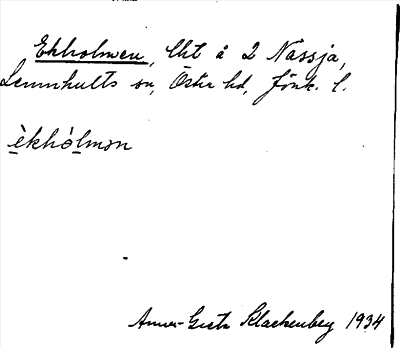 Ekholmen, lht å 2 Nässja,
Lemnhults sn, Östra hd, Jönk. l.
èkhòlmən
Anna-Greta Klackenberg 1934